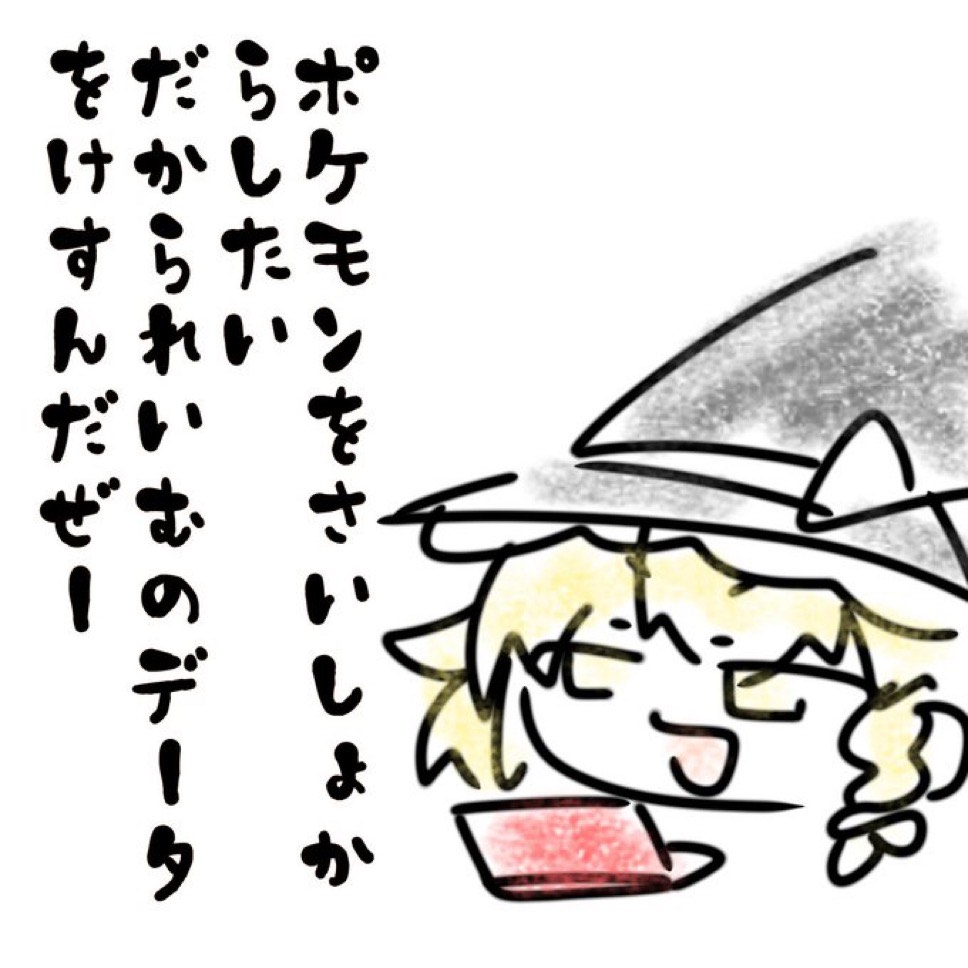 ポケモンをさいしょか
らしたい
だかられいむのデータ
をけすんだぜー